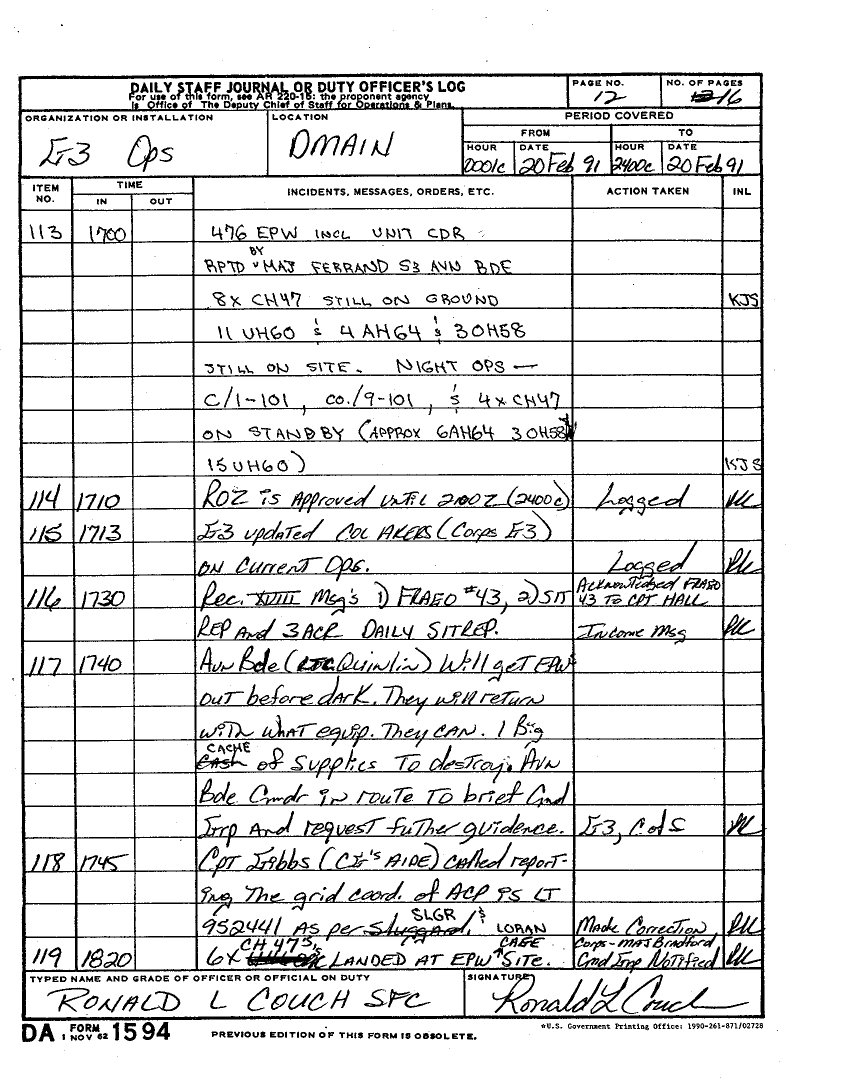 DAILY STAFF JOURNAL OR DUTY OFFICER'S LOG
For use of this form, see AR 220-15: the proponent agency
is Office of The Deputy Chief of Staff for Operations & Plans.
PAGE NO.
12
NO. OF PAGES
16
ORGANIZATION OR INSTALLATION
G3 Ops
LOCATION
DMAIN
PERIOD COVERED
FROM
TO
HOUR
0001c
DATE
20 Feb 91
HOUR
2400c
DATE
20 Feb 91
ITEM NO.
TIME
IN
OUT
INCIDENTS, MESSAGES, ORDERS, ETC.
ACTION TAKEN
INL
113 1700 476 EPW INCL UNIT CDR
BY
RPTD MAJ FERRAND S3 AVN BDE
8x CH47 STILL ON GROUND KJS
11 UH60 & 4 AH64 & 3 OH58
STILL ON SITE. NIGHT OPS —
C/1-101, CO./9-101, & 4x CH47
ON STANDBY (APPROX 6AH64 3 OH58
15 UH60) KJS
114 1710 ROZ is Approved until 2100Z (2400c) Logged
115 1713 G3 updated COL AKERS (Corps G3)
on Current Ops. Logged
116 1730 Rec. XVIII Msg's 1) FRAGO #43, 2) SIT Acknowledged FRAGO
43 To CPT HALL
REP And 3ACR DAILY SITREP. Income Msg
117 1740 Avn Bde (LTC Quinlin) Will get EPW
out before dark. They will return
with what equip. They CAN. 1 Big
CACHE
Cash of Supplies To destroy. Avn
Bde Cmdr in route To brief Cmd
Grp And request futher guidence. G3, CofS
118 1745 CPT Gibbs (CG's AIDE) called report-
ing The grid coord. of ACP is LT
SLGR &
952441 As per Sluggard, LORAN Made Correction
119 1820 6x CH 47's LANDED AT EPW CAGE SITE. Corps - MAJ Bradford
Cmd Grp Notified
TYPED NAME AND GRADE OF OFFICER OR OFFICIAL ON DUTY
RONALD L COUCH SFC
SIGNATURE
Ronald L Couch
DA FORM 1594
1 NOV 62
PREVIOUS EDITION OF THIS FORM IS OBSOLETE.
*U.S. Government Printing Office: 1990-261-871/02728